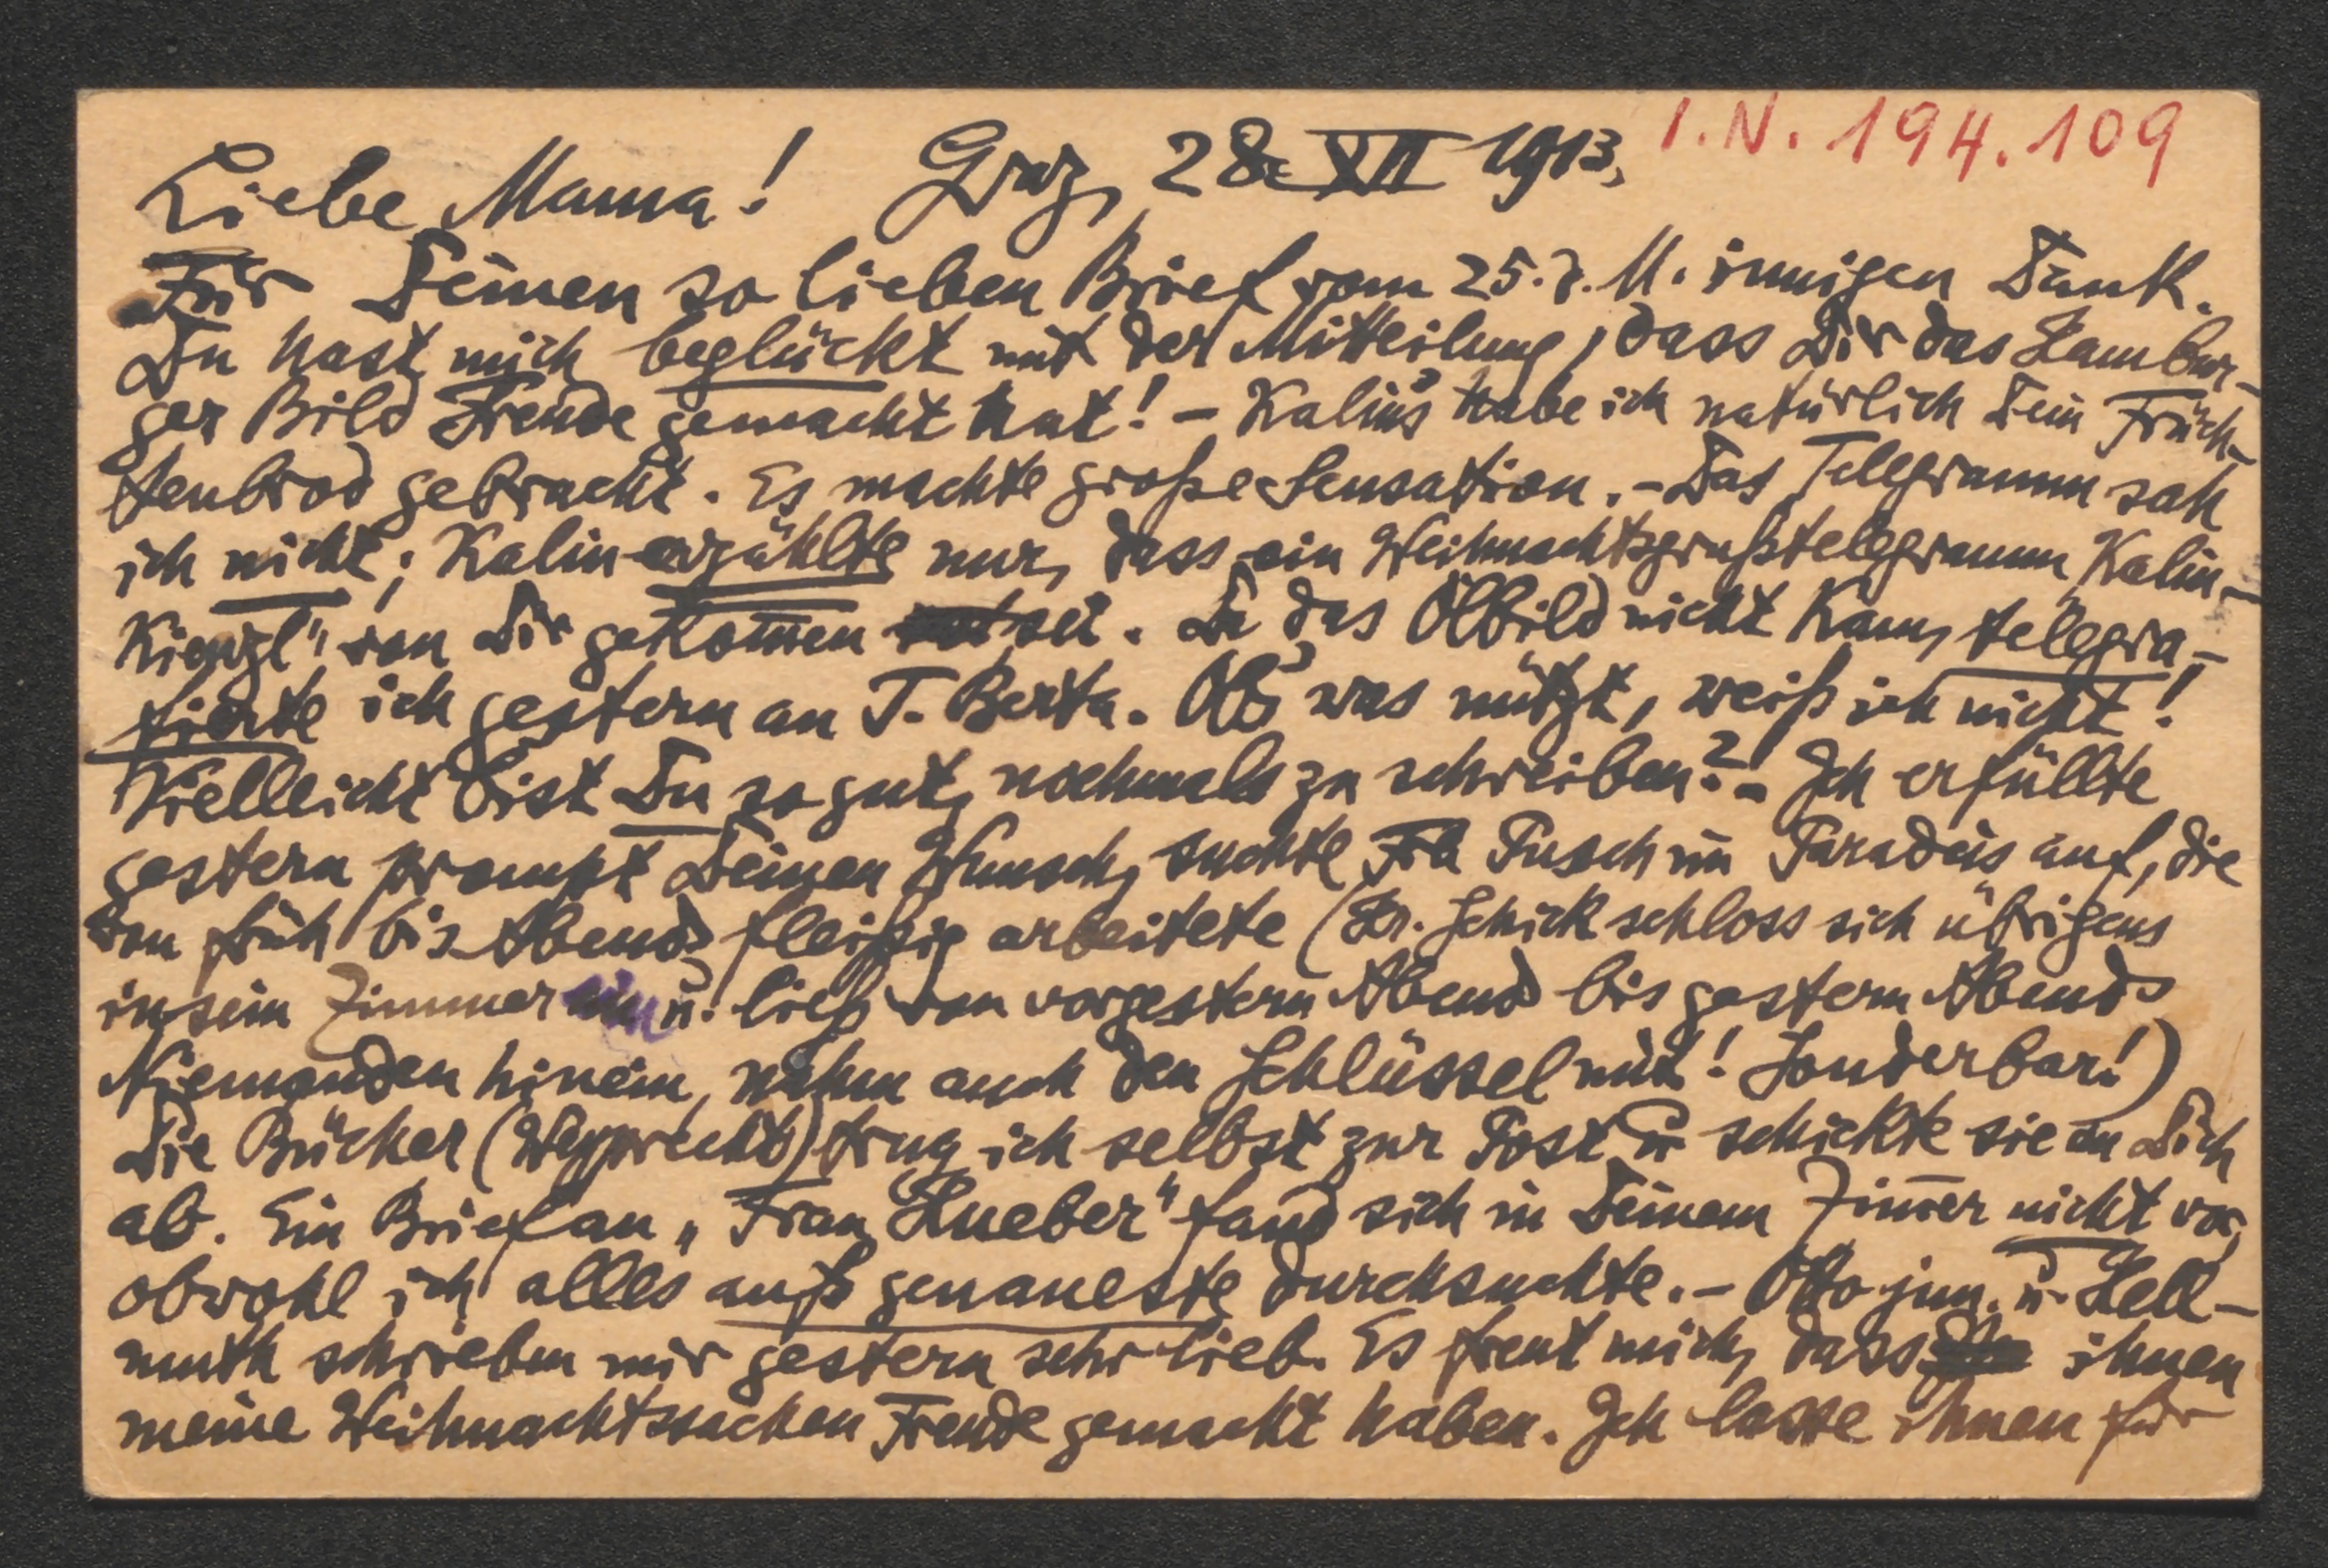 I.N. 194.109
Liebe Mama! Graz, 28. XII 1913.
Für Deinen so lieben Brief vom 25. d. M. innigen Dank.
Du hast mich beglückt mit der Mitteilung, dass Dir das Hambur-
ger Bild Freude gemacht hat! - Kalins habe ich natürlich Dein Früch-
tenbrod gebracht. Es machte große Sensation. - Das Telegramm sah
ich nicht; Kalin erzählte nur, dass ein Weihnachtsgrußtelegramm Kalin-
Kienzl" von Dir gekom̅en sei. Da das Ölbild nicht kam, telegra-
fierte ich gestern an T. Berta. Ob's was nützt, weiß ich nicht!
Vielleicht bist Du so gut, nochmals zu schreiben? - Ich erfüllte
gestern prompt Deinen Wunsch, suchte Fr. Pusch im Paradeis auf, die
von früh bis Abends fleißig arbeitete (Dr. Schick schloss sich übrigens
in sein Zimmer ein u. ließ von vorgestern Abend bis gestern Abends
Niemanden hinein, nahm auch den Schlüssel mit! Sonderbar!)
Die Bücher (Weyprecht) trug ich selbst zur Post u schickte sie an Dich
ab. Ein Brief an „Frau Hueber" fand sich in Deinem Zim̅er nicht vor,
obwohl ich alles aufs genaueste durchsuchte. - Otto jun. u. Hell-
muth schrieben mir gestern sehr lieb. Es freut mich, dass ihnen
meine Weihnachtssachen Freude gemacht haben. Ich lasse ihnen für